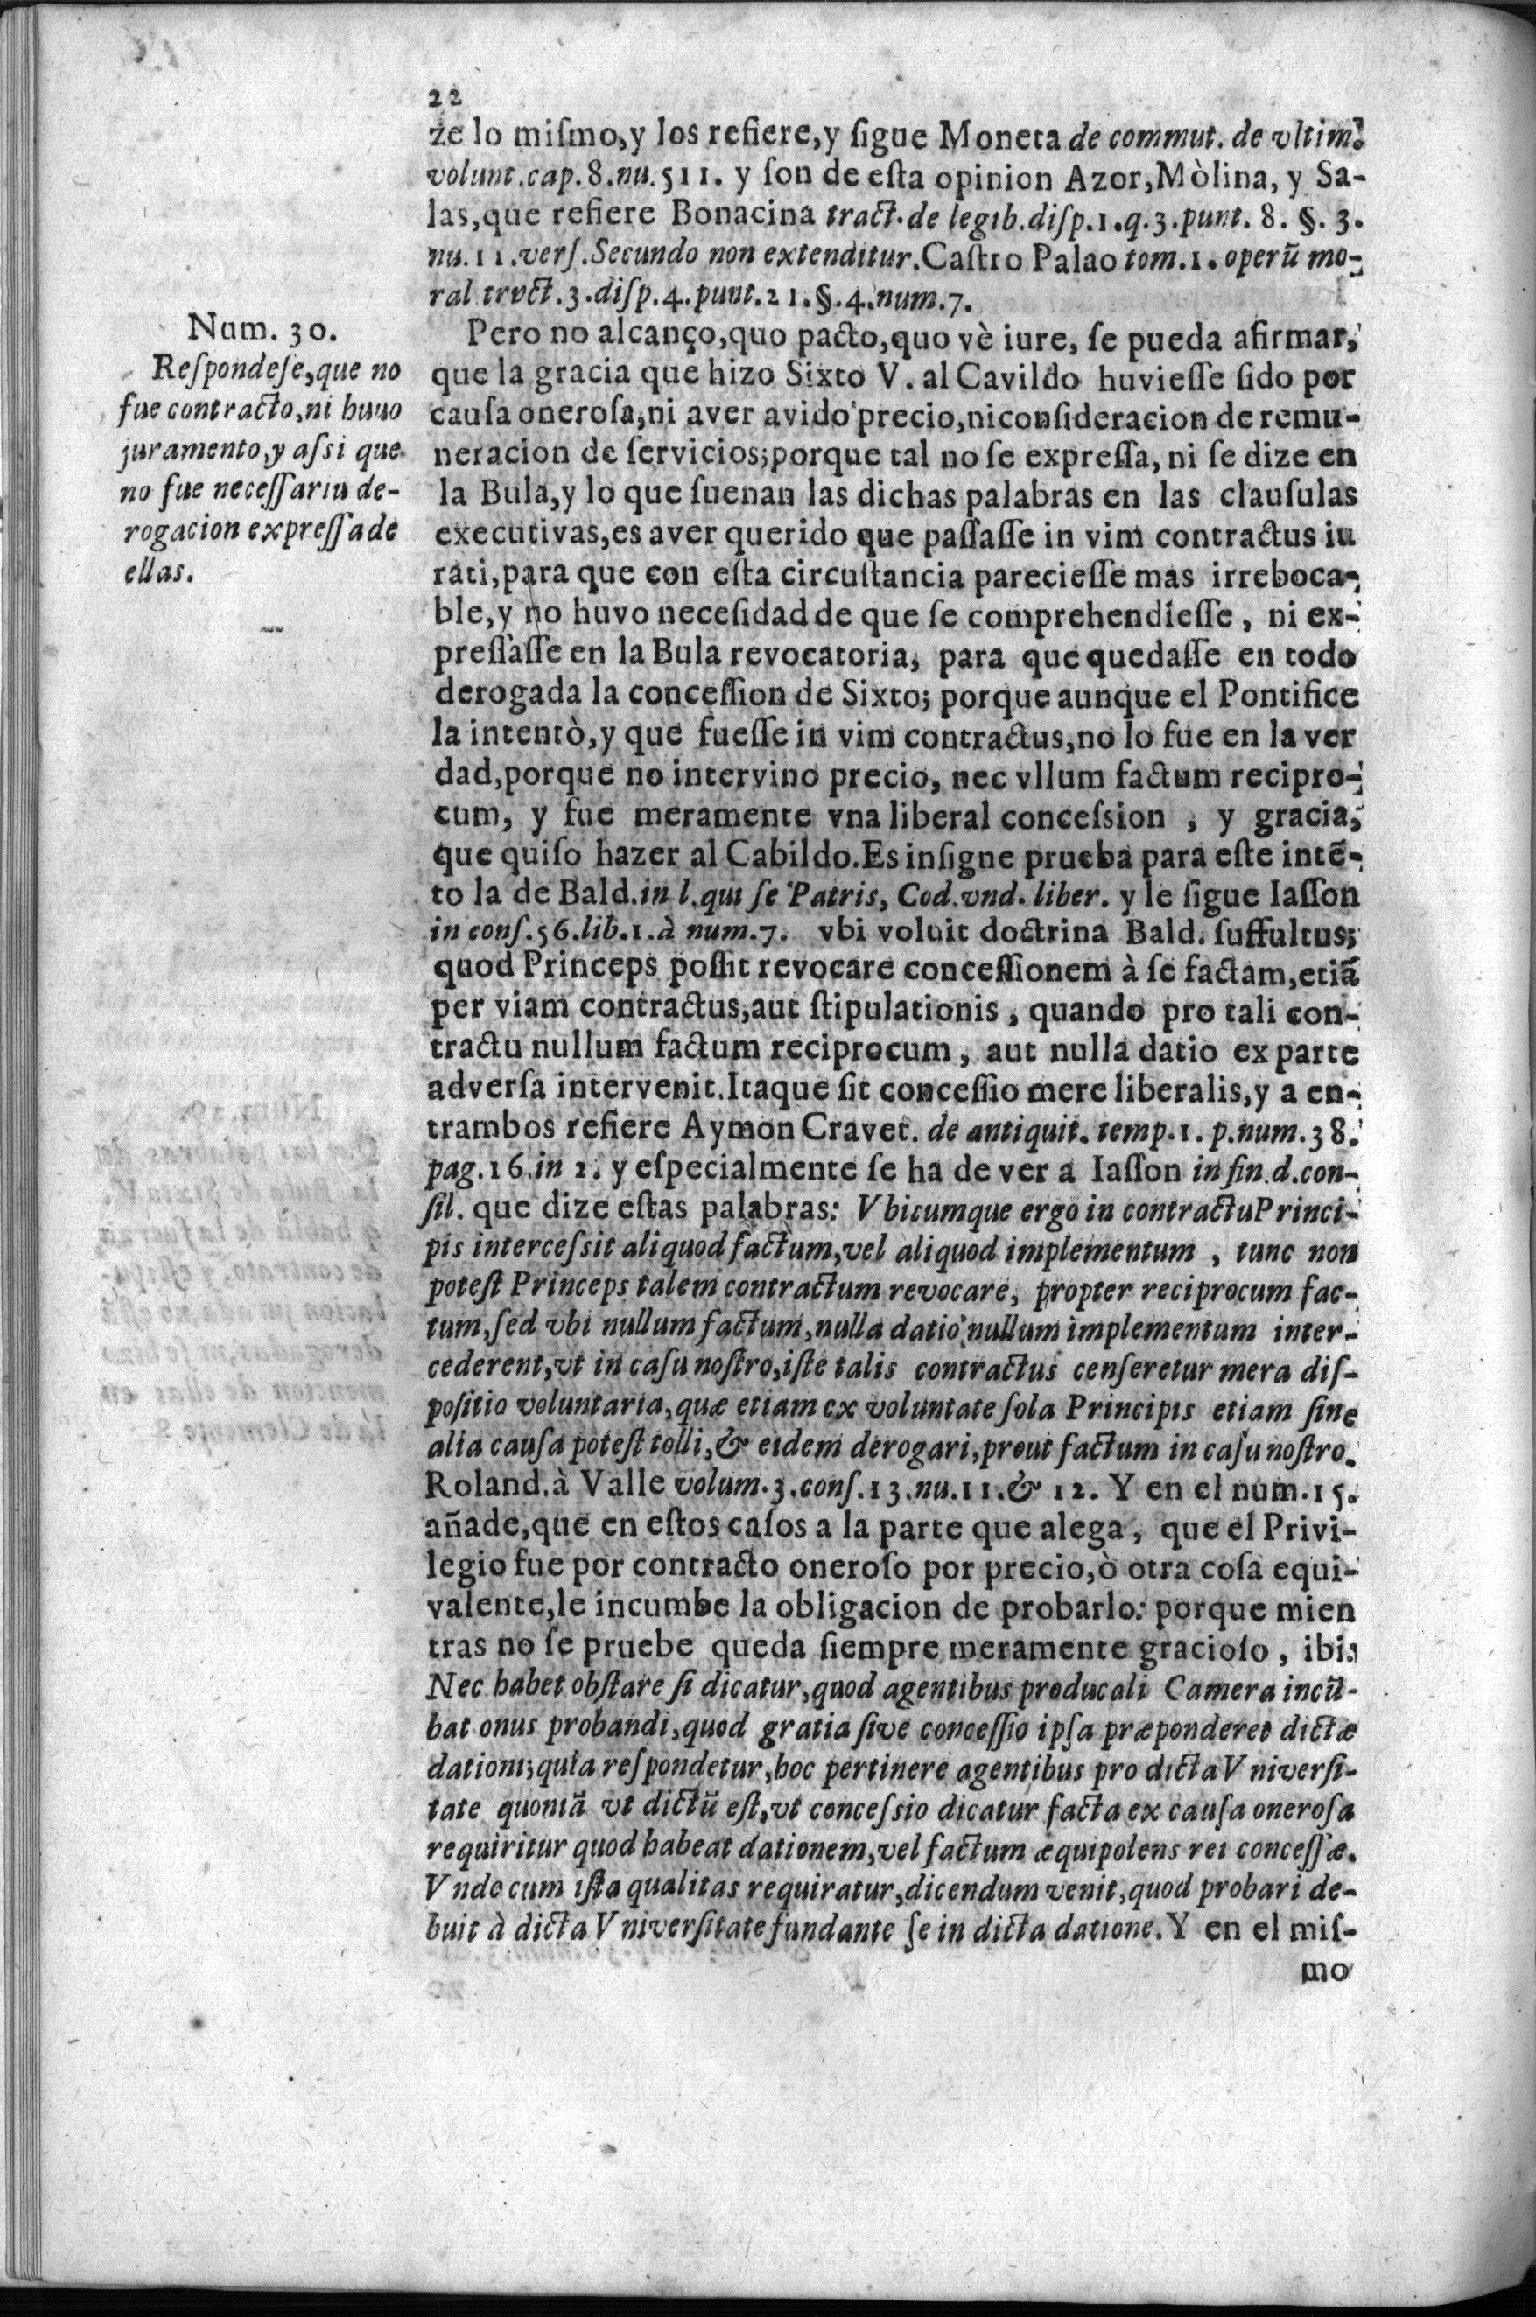 22
ze lo miſmo,y los refiere,y ſigue Moneta de commut. de vltim.
volunt.cap.8.nu.511. y ſon de eſta opinion Azor,Mòlina, y Sa-
las,que refiere Bonacina tract.de legib.diſp.1.q.3.punt. 8. §. 3.
nu.11.verſ.Secundo non extenditur.Caſtro Palao tom.1.operũ mo-
ral trvct.3.diſp.4.punt.21.§.4.num.7.
Num. 30.
Reſpondeſe,que no
fue contracto,ni huuo
juramento,y aſsi que
no fue neceſſaria de-
rogacion expreſſa de
ellas.
Pero no alcanço,quo pacto,quo vè iure, ſe pueda afirmar,
que la gracia que hizo Sixto V. al Cavildo huvieſſe ſido por
cauſa oneroſa,ni aver avido precio,ni conſideracion de remu-
neracion de ſervicios;porque tal no ſe expreſſa, ni ſe dize en
la Bula,y lo que ſuenan las dichas palabras en las clauſulas
executivas,es aver querido que paſſaſſe in vim contractus iu
rati,para que con eſta circuſtancia parecieſſe mas irreboca-
ble,y no huvo neceſidad de que ſe comprehendieſſe, ni ex-
preſſaſſe en la Bula revocatoria, para que quedaſſe en todo
derogada la conceſſion de Sixto; porque aunque el Pontifice
la intentò,y que fueſſe in vim contractus,no lo fue en la ver
dad,porque no intervino precio, nec vllum factum recipro-
cum, y fue meramente vna liberal conceſsion, y gracia,
que quiſo hazer al Cabildo.Es inſigne prueba para eſte intẽ-
to la de Bald.in l.qui ſe Patris, Cod.vnd.liber. y le ſigue Iaſſon
in conſ.56.lib.1.à num.7. vbi voluit doctrina Bald. ſuffultus;
quod Princeps poſſit revocare conceſſionem à ſe factam,etiã
per viam contractus,aut ſtipulationis, quando pro tali con-
tractu nullum factum reciprocum, aut nulla datio ex parte
adverſa intervenit.Itaque ſit conceſſio mere liberalis,y a en-
trambos refiere Aymon Cravet. de antiquit. temp.1.p.num.38.
pag.16.in 2. y eſpecialmente ſe ha de ver a Iaſſon in fin.d.con-
ſil. que dize eſtas palabras: Vbicumque ergo in contractu Princi-
pis interceſsit aliquod factum,vel aliquod implementum, tunc non
poteſt Princeps talem contractum revocare, propter reciprocum fac-
tum,ſed vbi nullum factum,nulla datio,nullum implementum inter-
cederent,vt in caſu noſtro,iſte talis contractus cenſeretur mera diſ-
poſitio voluntaria,quæ etiam ex voluntate ſola Principis etiam ſine
alia cauſa poteſt tolli,& eidem derogari,prout factum in caſu noſtro.
Roland.à Valle volum.3.conſ.13.nu.11.& 12. Y en el num.15.
añade,que en eſtos caſos a la parte que alega, que el Privi-
legio fue por contracto oneroſo por precio,ò otra coſa equi-
valente,le incumbe la obligacion de probarlo: porque mien
tras no ſe pruebe queda ſiempre meramente gracioſo, ibi.
Nec habet obſtare ſi dicatur,quod agentibus pro ducali Camera incũ-
bat onus probandi,quod gratia ſive conceſſio ipſa præponderet dictæ
dationi;quia reſpondetur,hoc pertinere agentibus pro dicta Vniverſi-
tate quoniã vt dictũ eſt,vt conceſsio dicatur facta ex cauſa oneroſa
requiritur quod habeat dationem,vel factum æquipolens rei conceſſæ.
Vnde cum iſta qualitas requiratur,dicendum venit,quod probari de-
buit à dicta Vniverſitate fundante ſe in dicta datione. Y en el miſ-
mo